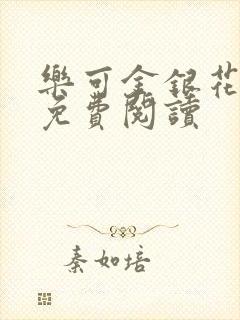 樂可金銀花
免費閱讀
秦如培